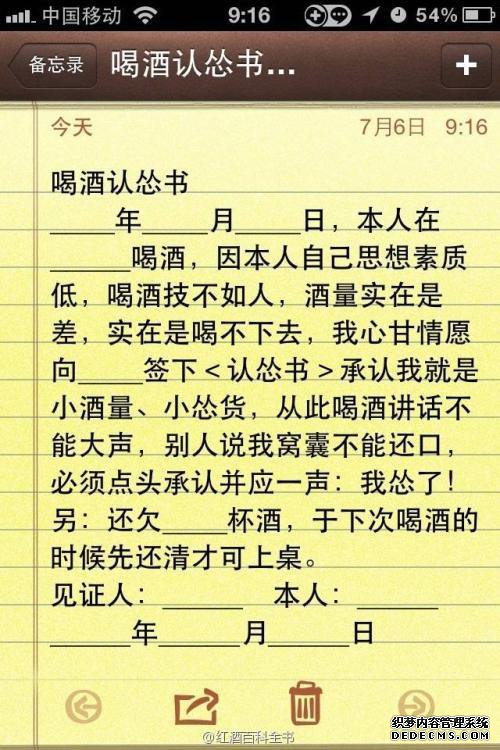 中国移动 9:16 54%
备忘录 喝酒认怂书...
今天 7月6日 9:16
喝酒认怂书
_____年_____月_____日，本人在
______喝酒，因本人自己思想素质
低，喝酒技不如人，酒量实在是
差，实在是喝不下去，我心甘情愿
向_____签下＜认怂书＞承认我就是
小酒量、小怂货，从此喝酒讲话不
能大声，别人说我窝囊不能还口，
必须点头承认并应一声：我怂了！
另：还欠_____杯酒，于下次喝酒的
时候先还清才可上桌。
见证人：______ 本人：______
______年______月______日
@红酒百科全书
织梦内容管理系统
DEDECMS.COM